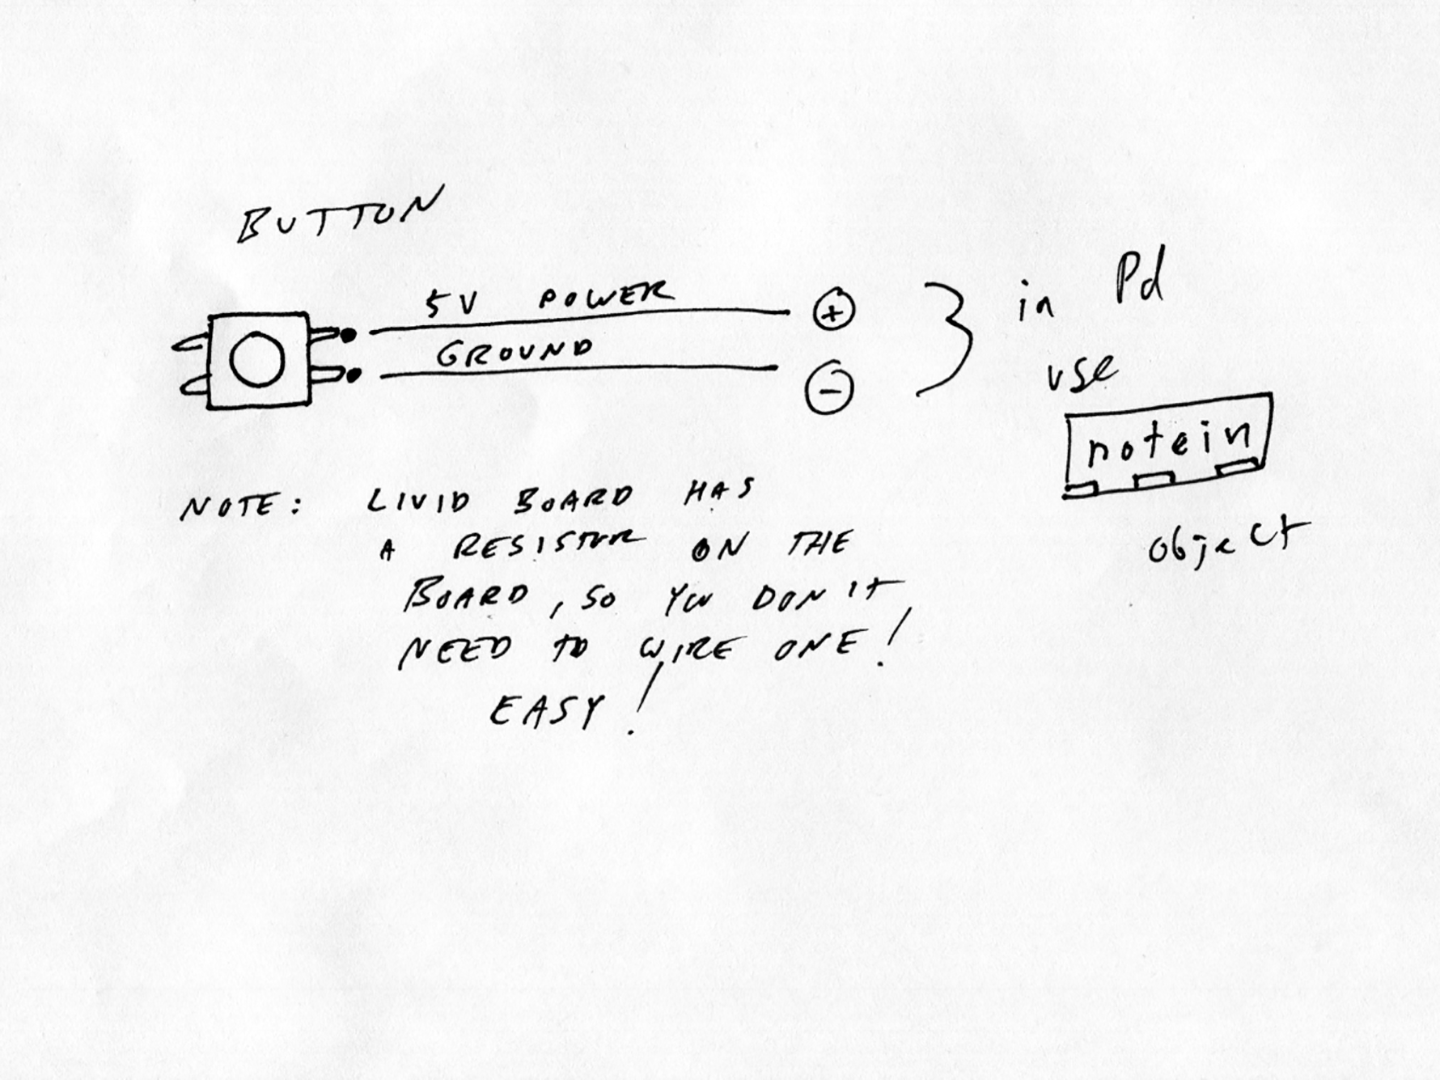 BUTTON
5V POWER
GROUND
+
-
in Pd
use
notein
object
NOTE: LIVID BOARD HAS
A RESISTOR ON THE
BOARD, SO YOU DON'T
NEED TO WIRE ONE!
EASY!